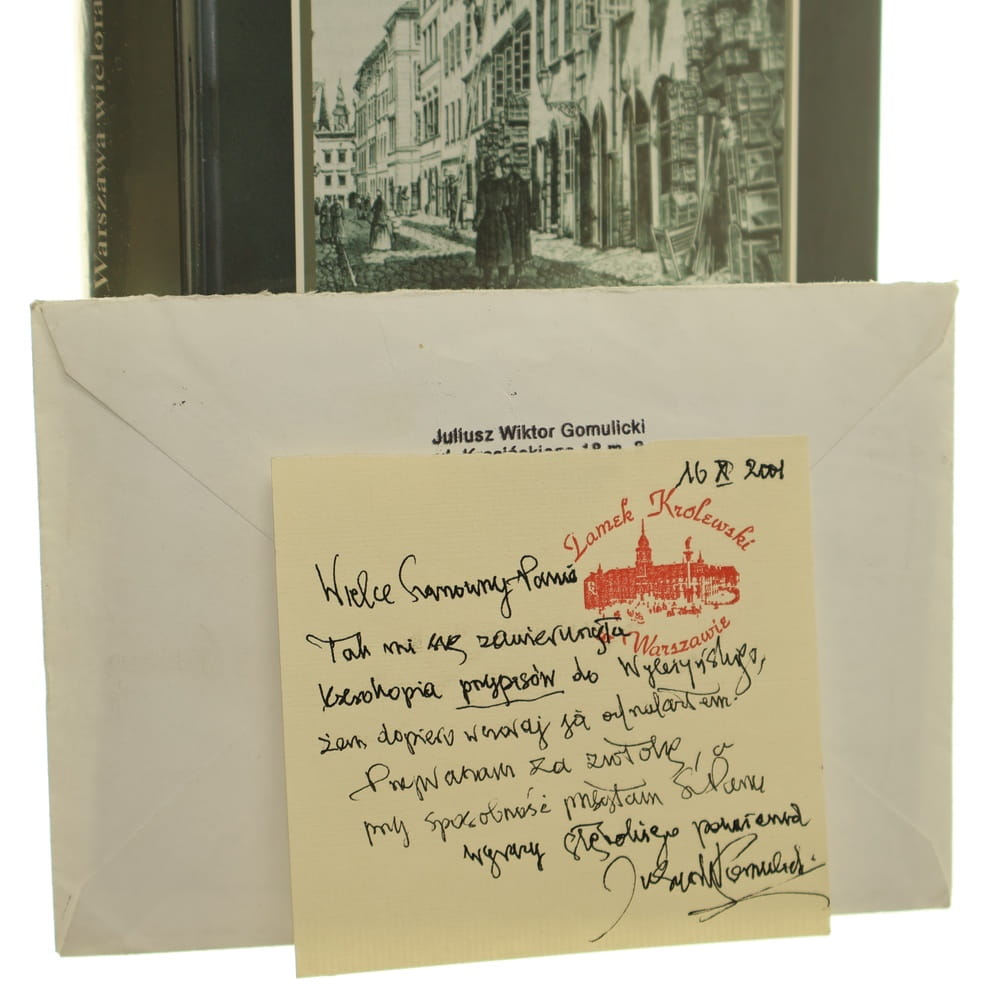 Warszawa wielora
Juliusz Wiktor Gomulicki
ul. Krasińskiego 18 m. 8
16 XI 2001
Zamek Królewski
Warszawie
Wielce Szanowny Panie
Tak mi się zawieruszyła
kserokopia przypisów do Wyleżyńskiego,
żem dopiero wczoraj ją odnalazłem.
Przepraszam za zwłokę, a
przy sposobności przesyłam Sz. Panu
wyrazy głębokiego poważania
Juliusz W. Gomulicki